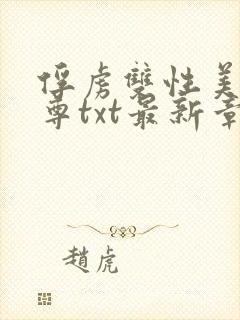 俘虏雙性美
尊txt最新章
趙虎